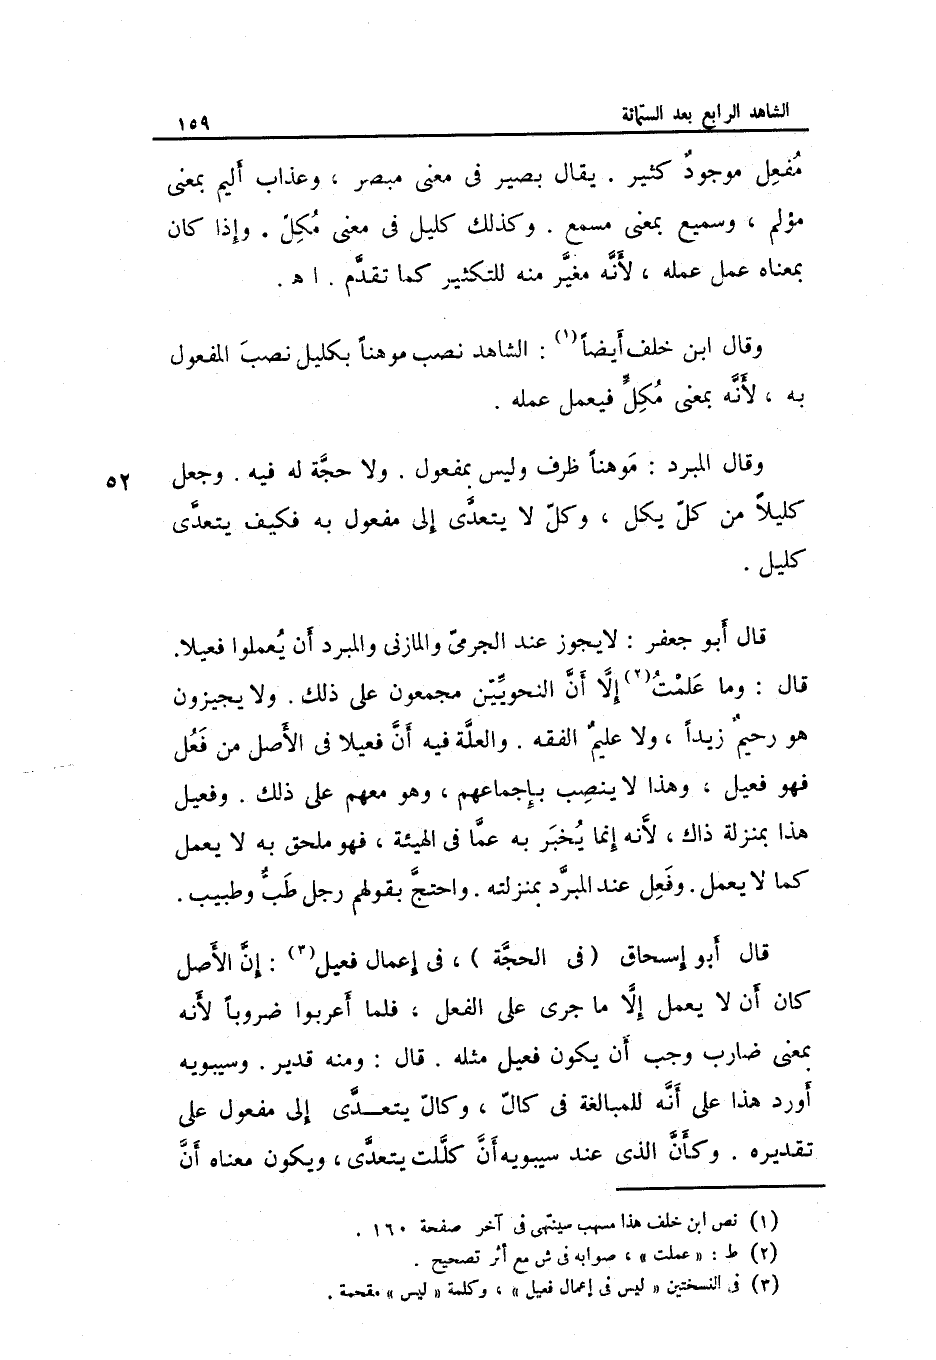 الشاهد الرابع بعد الستمائة ١٥٩
مُفعِل موجودٌ كثير . يقال بصير فى معنى مبصر ، وعذاب أليم بمعنى
مؤلم ، وسميع بمعنى مسمع . وكذلك كليل فى معنى مُكِلّ . وإذا كان
بمعناه عمل عمله ، لأَنَّه مغيَّر منه للتكثير كما تقدَّم . ا ه .
وقال ابن خلف أَيضاً(١) : الشاهد نصب موهناً بكليل نصبَ المفعول
به ، لأَنَّه بمعنى مُكِلٍّ فيعمل عمله .
وقال المبرد : مَوهناً ظرف وليس بمفعول . ولا حجَّة له فيه . وجعل ٥٢
كليلاً من كلّ يكل ، وكلّ لا يتعدَّى إلى مفعول به فكيف يتعدَّى
كليل .
قال أَبو جعفر : لايجوز عند الجرمىّ والمازنى والمبرد أَن يُعملوا فعيلا.
قال : وما عَلمْتُ(٢) إلَّا أَنَّ النحويِّين مجمعون على ذلك . ولا يجيزون
هو رحيمٌ زيداً ، ولا عليمٌ الفقه . والعلَّة فيه أَنَّ فعيلا فى الأَصل من فَعُل
فهو فعيل ، وهذا لا ينصِب بإجماعهم ، وهو معهم على ذلك . وفعيل
هذا بمنزلة ذاك ، لأَنه إنما يُخبَر به عمَّا فى الهيئة ، فهو ملحق به لا يعمل
كما لا يعمل . وفَعِل عند المبرَّد بمنزلته . واحتجَّ بقولهم رجل طَبٌّ وطبيب .
قال أَبو إسحاق ( فى الحجَّة ) ، فى إعمال فعيل(٣) : إنَّ الأَصل
كان أَن لا يعمل إلَّا ما جرى على الفعل ، فلما أَعربوا ضروباً لأَنه
بمعنى ضارب وجب أَن يكون فعيل مثله . قال : ومنه قدير . وسيبويه
أَورد هذا على أَنَّه للمبالغة فى كالّ ، وكالّ يتعـــدَّى إلى مفعول على
تقديره . وكأَنَّ الذى عند سيبويه أَنَّ كلَّلت يتعدَّى ، ويكون معناه أَنَّ
(١) نص ابن خلف هذا مسهب سينتهى فى آخر صفحة ١٦٠ .
(٢) ط : « عملت » ، صوابه فى ش مع أثر تصحيح .
(٣) فى النسختين « ليس فى إعمال فعيل » ، وكلمة « ليس » مقحمة .